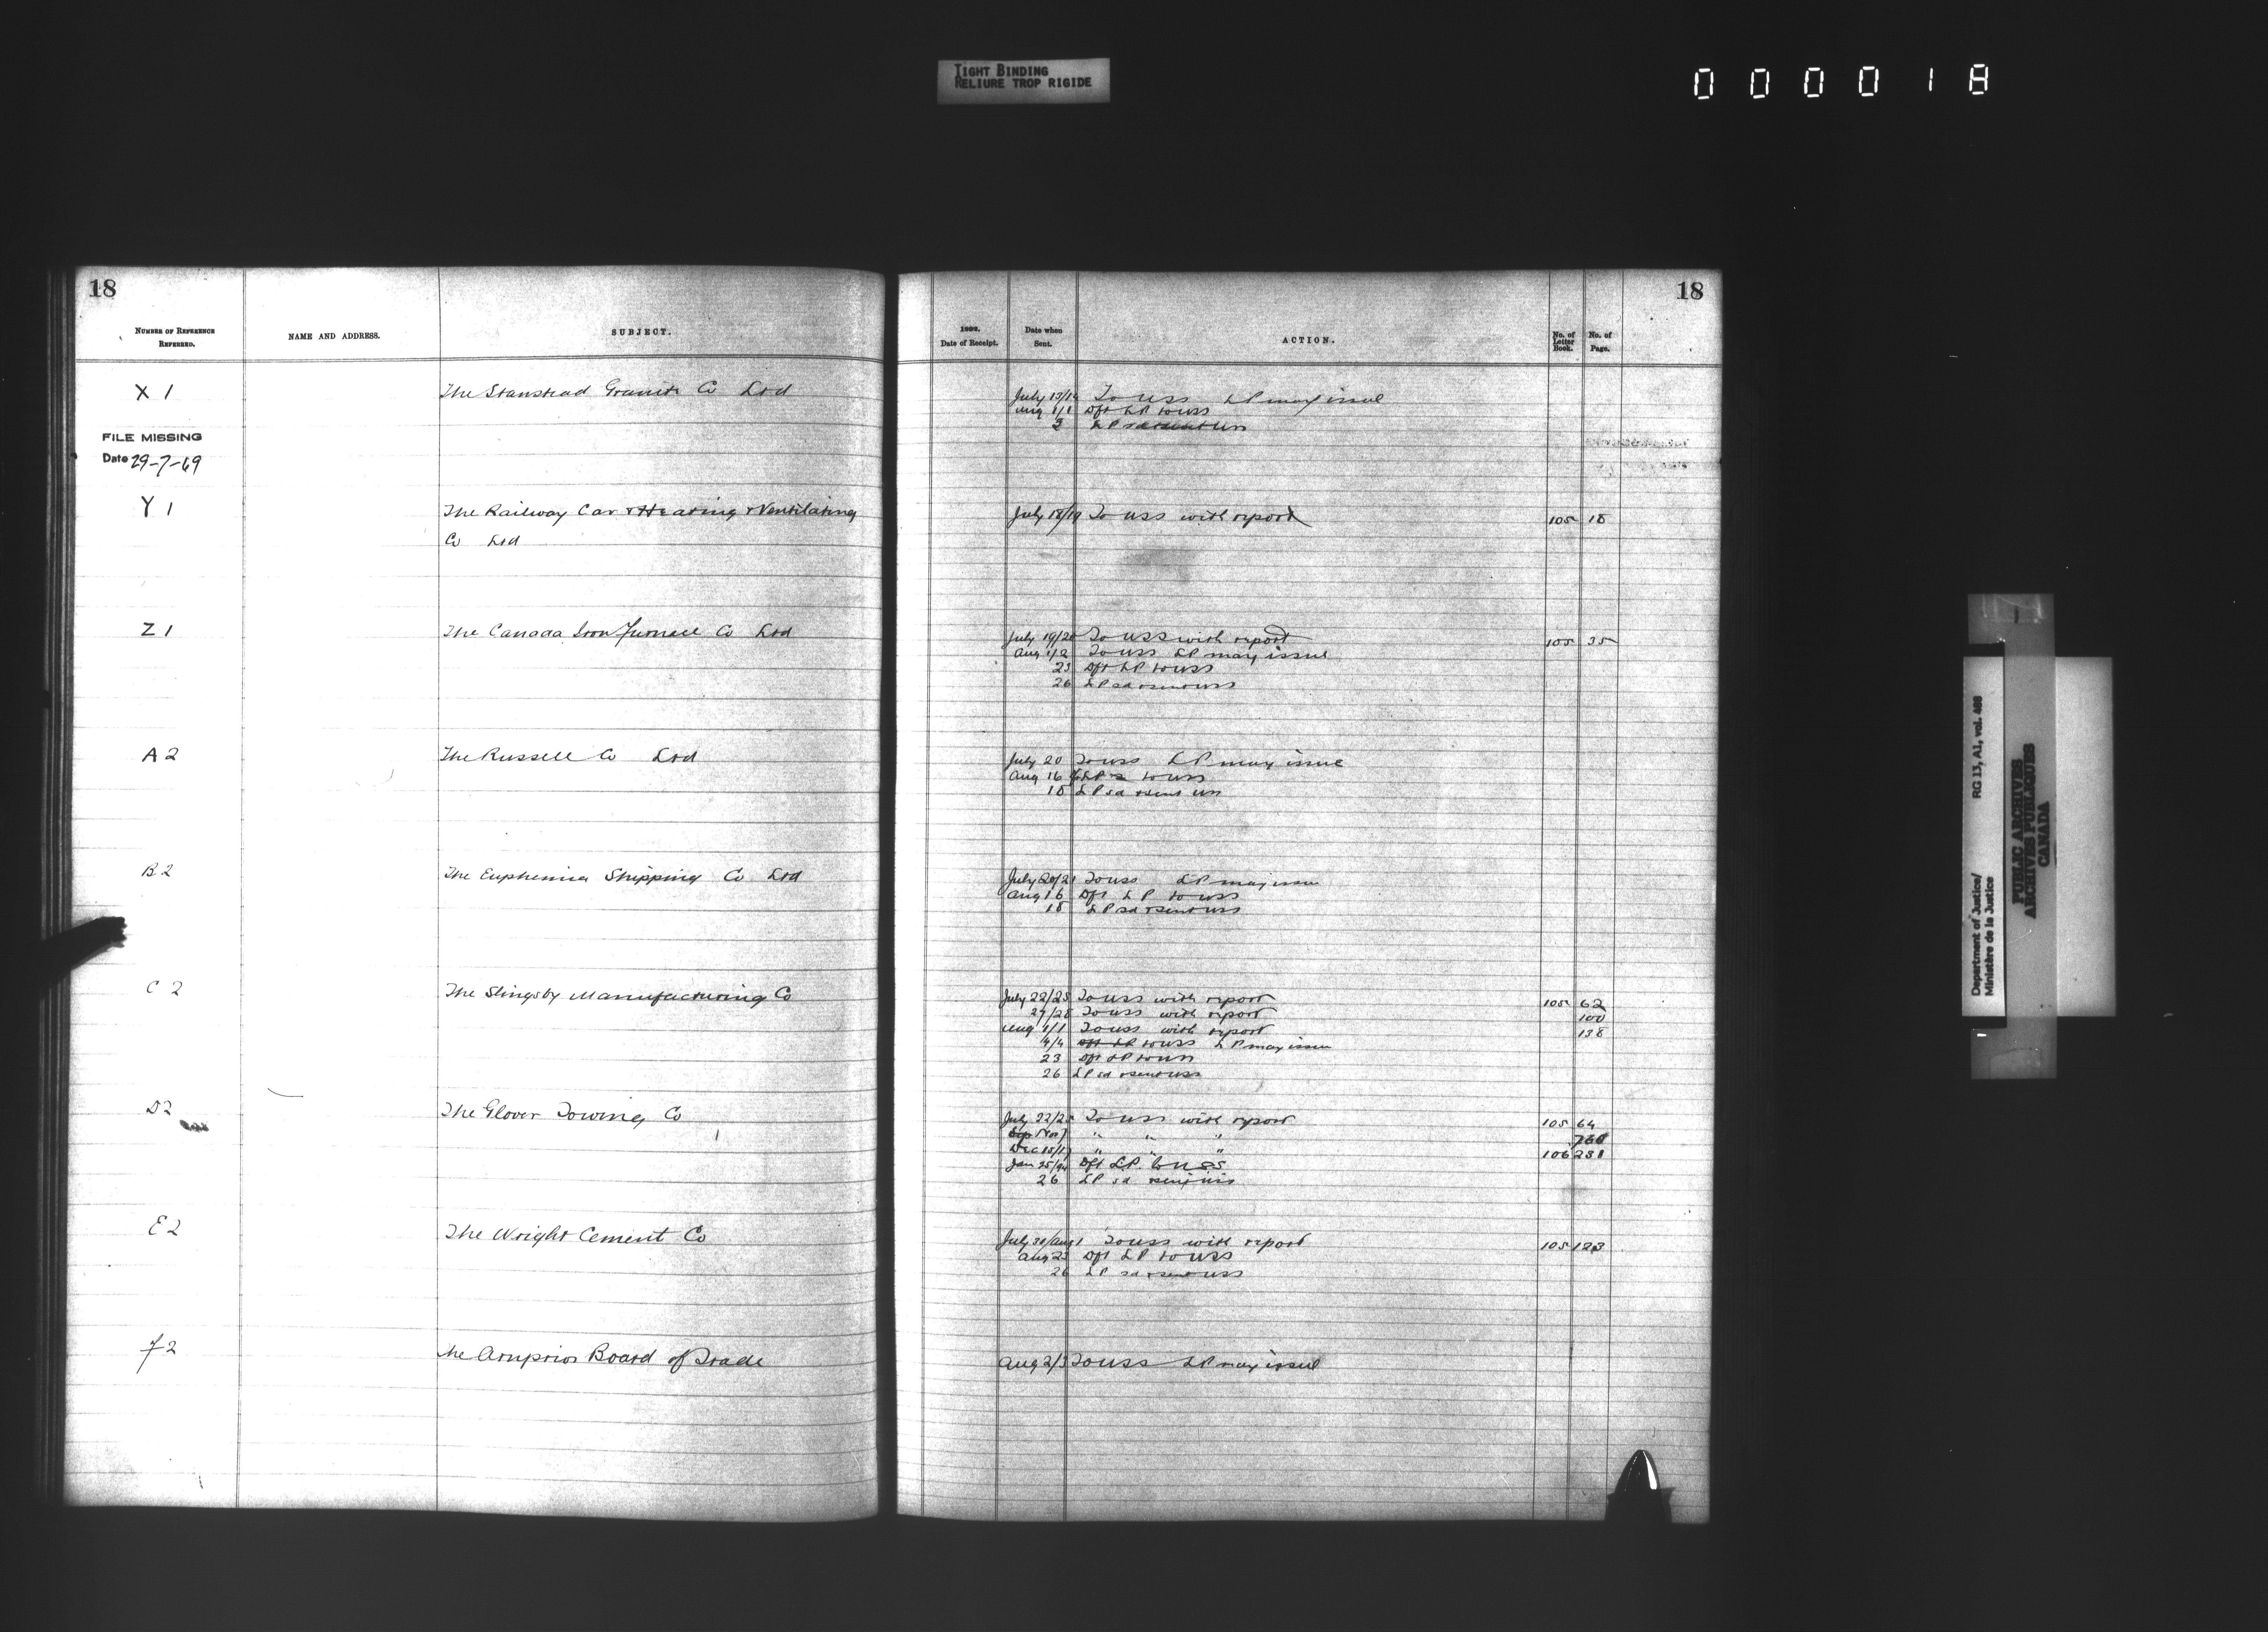 TIGHT BINDING
RELIURE TROP RIGIDE
000018
18
NUMBER OF REFERENCE REFERRED.
NAME AND ADDRESS.
SUBJECT.
X 1
The Stanstead Granite Co Ltd
FILE MISSING
Date 29-7-69
Y 1
The Railway Car & Heating & Ventilating
Co Ltd
Z 1
The Canada Iron Furnace Co Ltd
A 2
The Russell Co Ltd
B 2
The Euphemia Shipping Co Ltd
C 2
The Slingsby Manufacturing Co
D2
The Glover Towing Co
E 2
The Wright Cement Co
F 2
The Arnprior Board of Trade
18
Date of Receipt.
Date when Sent.
ACTION.
No. of Letter Book.
No. of Page.
July 13/14 To USS LP may issue
Aug 1/1 Dft LP to USS
3 LP sd & sent USS
July 18/19 To USS with report 105 18
July 19/20 To USS with report 105 35
Aug 1/2 To USS LP may issue
23 Dft LP to USS
26 LP sd & sent USS
July 20 To USS LP may issue
Aug 16 LP to USS
18 LP sd & sent USS
July 20/21 To USS LP may issue
Aug 16 Dft LP to USS
18 LP sd & sent USS
July 22/25 To USS with report 105 62
27/28 To USS with report 100
Aug 1/1 To USS with report 138
4/4 to USS LP may issue
23 Dft LP to USS
26 LP sd & sent USS
July 22/25 To USS with report 105 64
Nov 7 " " " 760
Dec 15/17 " " " 106 231
Jan 25/94 Dft LP to USS
26 LP sd & sent USS
July 30/Aug 1 To USS with report 105 123
Aug 23 Dft LP to USS
26 LP sd & sent USS
Aug 2/3 To USS LP may issue
Department of Justice/ RG 13, A1, vol. 488
Ministère de la Justice
PUBLIC ARCHIVES
ARCHIVES PUBLIQUES
CANADA